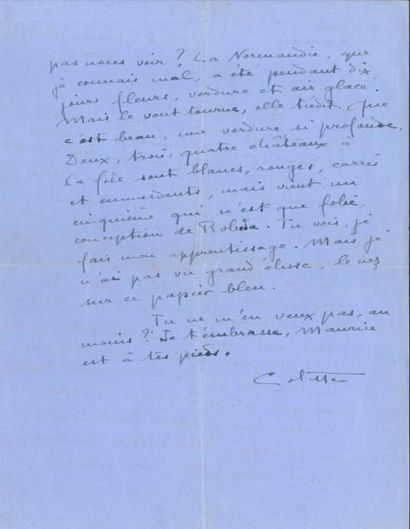 pas nous voir ? La Normandie, que
je connais mal, a été pendant dix
jours fleurs, verdure et air glacé.
Mais le vent tourne, elle tiédit. Que
c'est beau, une verdure si profonde.
Deux, trois, quatre châteaux à
la file sont blancs, rouges, carrés
et emmerdants, mais vient un
cinquième qui n'est que folie,
conception de Robida. Tu vois, je
fais mon apprentissage. Mais je
n'ai pas vu grand'chose, le nez
sur ce papier bleu.
Tu ne m'en veux pas, au
moins ? Je t'embrasse, Maurice
est à tes pieds.
Colette